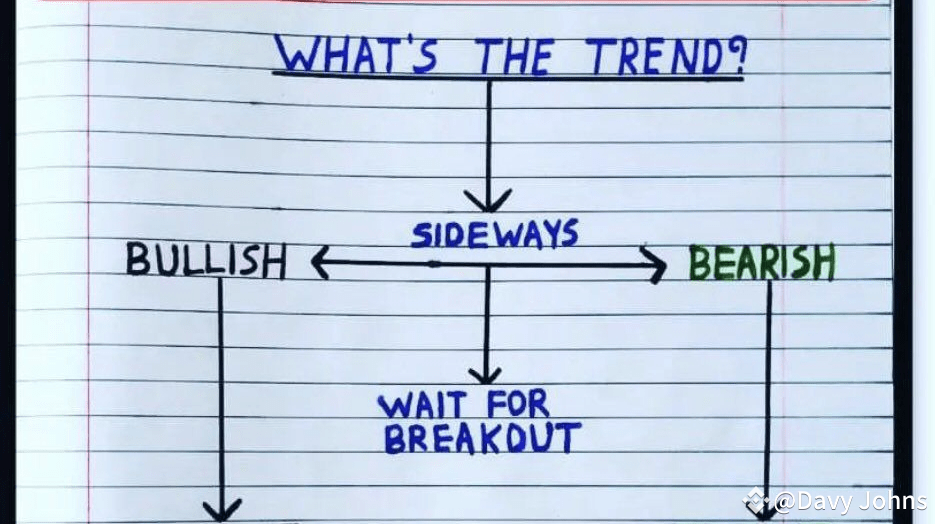 WHAT'S THE TREND?
SIDEWAYS
BULLISH
BEARISH
WAIT FOR
BREAKOUT
@Davy Johns